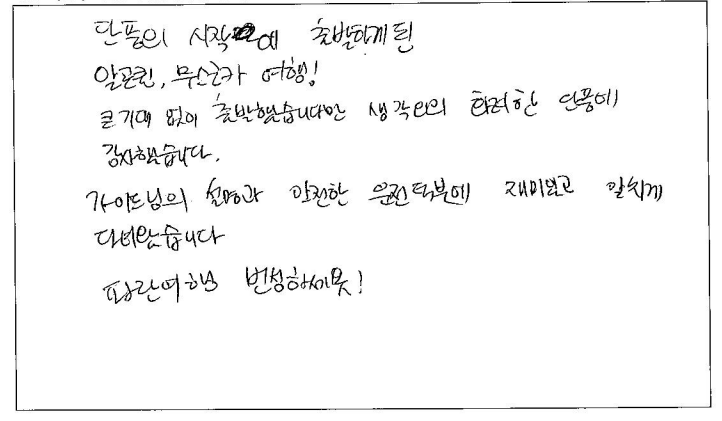 단풍의 시작에 출발하게 된
알곤퀸, 무스코카 여행!
큰 기대 없이 출발했습니다만 생각외의 화려한 단풍에
감사했습니다.
가이드님의 설명과 안전한 운전덕분에 재미있고 알차게
다녀왔습니다
파란여행 번성하세욧!